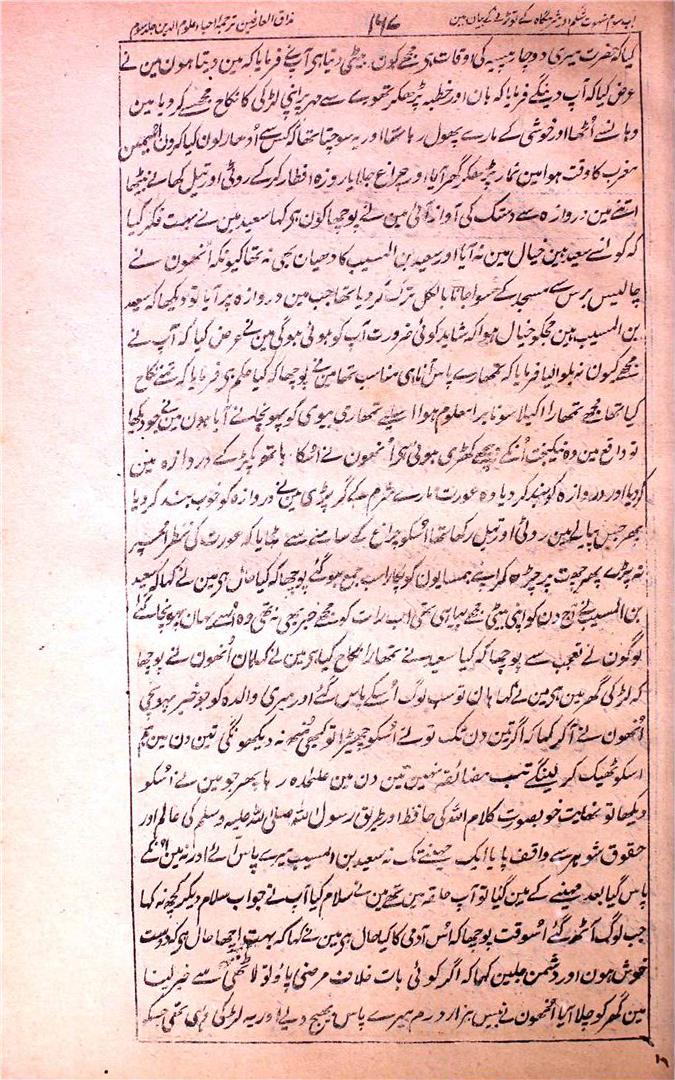 باب سوم شہوت شکم اور شرمگاہ کے توڑنے کے بیان مین
۱۶۷
مذاق العارفین ترجمہ احیاء علوم الدین جلد سوم
کیا کہ حضرت میری دو چار پیسہ کی اوقات ہی مجھے کون بیٹی دیتا ہی آپنے فرمایا کہ مین دیتا ہون مین نے
عرض کیا کہ آپ دینگے فرمایا کہ ہان اور خطبہ پڑھکر تھوڑے سے مہر پر اپنی لڑکی کا نکاح مجھسے کر دیا مین
وہانسے اُٹھا اور خوشی کے مارے پھول رہا تھا اور یہ سوچتا تھا کہ کس سے اُدھار لون کیا کرون
مغرب کا وقت ہوا مین نماز پڑھکر گھر آیا اور چراغ جلایا روزہ افطار کرکے روٹی اور تیل کھانے بیٹھا
اتنے مین دروازہ سے دستک کی آواز آئی مین نے پوچھا کون ہی کہا سعید مین نے بہت فکر کیا
کہ کونسے سعید ہین خیال مین نہ آیا اور سعید بن المسیب کا دھیان بھی نہ تھا کیونکہ اُنھون نے
چالیس برس سے مسجد کے سوا جانا بالکل ترک کر دیا تھا جب مین دروازہ پر آیا تو دیکھا کہ سعید
بن المسیب ہین مجکو خیال ہوا کہ شاید کوئی ضرورت آپ کو ہوئی ہوگی مین نے عرض کیا کہ آپ نے
مجھے کیون نہ بلوا لیا فرمایا کہ تمھارے پاس آنا ہی مناسب تھا مین نے پوچھا کہ کیا حکم ہی فرمایا کہ تمنے نکاح
کیا تھا مجھے تمھارا اکیلا سونا برا معلوم ہوا اسلیے تمھاری بیوی کو پہونچانے آیا ہون مین نے جو دیکھا
تو واقع مین وہ نیکبخت اُنکے پیچھے کھڑی ہوئی ہی اُنھون نے اُسکا ہاتھ پکڑ کے دروازہ مین
کر دیا اور دروازہ کو بند کر دیا وہ عورت مارے شرم کے گر پڑی مین نے دروازہ کو خوب بند کر دیا
پھر جس پیالے مین روٹی اور تیل رکھا تھا اُسکو چراغ کے سامنے سے ہٹایا کہ عورت کی نظر اُسپر
نہ پڑے پھر چھت پر چڑھ کر اپنے ہمسایون کو پکارا سب جمع ہو گئے پوچھا کہ کیا حال ہی مین نے کہا کہ سعید
بن المسیب نے آج دن کو اپنی بیٹی مجھے بیاہی تھی اب رات کو مجھے خبر بھی نہ تھی وہ اُسے یہان پہونچا گئے
لوگون نے تعجب سے پوچھا کہ کیا سعید نے تمھارا نکاح کیا ہی مین نے کہا ہان اُنھون نے پوچھا
کہ لڑکی گھر مین ہی مین نے کہا ہان تو سب لوگ اُسکے پاس گئے اور میری والدہ کو جو خبر پہونچی
اُنھون نے آکر کہا کہ اگر تین دن تک تو نے اُسکو چھیڑا تو کبھی مُنھ نہ دیکھونگی تین دن مین ہم
اسکو ٹھیک کر لینگے تب مضائقہ نہین تین دن مین علٰحدہ رہا پھر جو مین نے اُسکو
دیکھا تو نہایت خوبصورت کلام اللہ کی حافظ اور طریق رسول اللہ صلی اللہ علیہ وسلم کی عالم اور
حقوق شوہر سے واقف پایا ایک مہینے تک نہ سعید بن المسیب میرے پاس آئے اور نہ مین اُنکے
پاس گیا بعد مہینے کے مین گیا تو آپ حلقہ مین تھے مین نے سلام کیا آپ نے جواب سلام دیکر کچھ نہ کہا
جب لوگ اُٹھ گئے اُسوقت پوچھا کہ اُس آدمی کا کیا حال ہی مین نے کہا کہ بہت اچھا حال ہی کہ دوست
خوش ہون اور دشمن جلین کہا کہ اگر کوئی بات خلاف مرضی پاؤ تو لاٹھی سے خبر لینا
مین گھر کو چلا آیا اُنھون نے بیس ہزار درم میرے پاس بھیج دیے اور یہ لڑکی وہی تھی جسکو